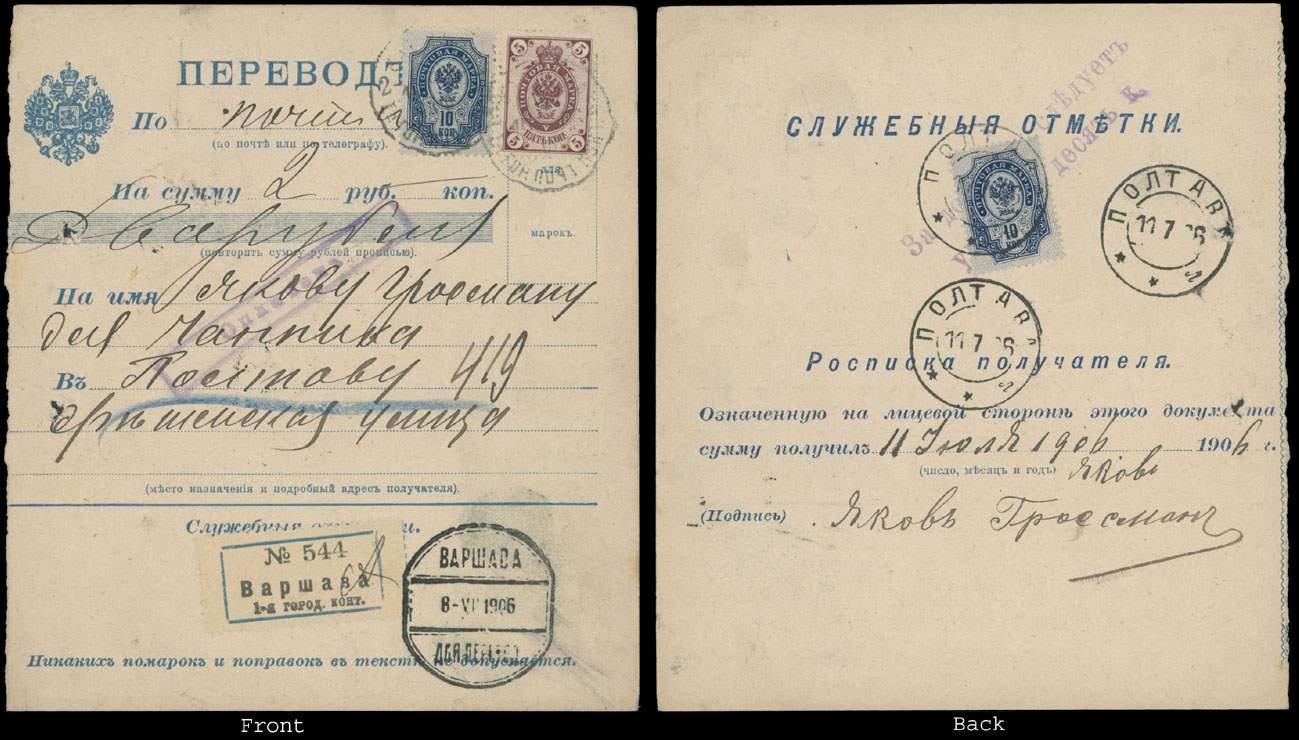 ПЕРЕВОДЪ
По почтѣ
(по почтѣ или по телеграфу).
На сумму 2 руб. — коп.
Два рубля
(повторить сумму рублей прописью).
марокъ.
На имя Якову Гросману
для
Въ Полтаву 419
улица
(мѣсто назначенія и подробный адресъ получателя).
Служебныя отмѣтки.
№ 544
Варшава
1-я город. конт.
ВАРШАВА
8-VII 1906
Никакихъ помарокъ и поправокъ въ текстѣ не допускается.
ПОЧТОВАЯ МАРКА
10
КОП
5 5
ПОЧТОВАЯ МАРКА
ПЯТЬ КОП.
5 5
Front
СЛУЖЕБНЫЯ ОТМѢТКИ.
Слѣдуетъ
десять к.
За
ПОЛТАВА
ПОЧТОВАЯ МАРКА
10
КОП
ПОЛТАВА
11 7 06
ПОЛТАВА
11 7 06
Росписка получателя.
Означенную на лицевой сторонѣ этого документа
сумму получилъ 11 Іюля 1906 1906 г.
(число, мѣсяцъ и годъ)
Яковъ
(Подпись) Яковъ Гроссманъ
Back